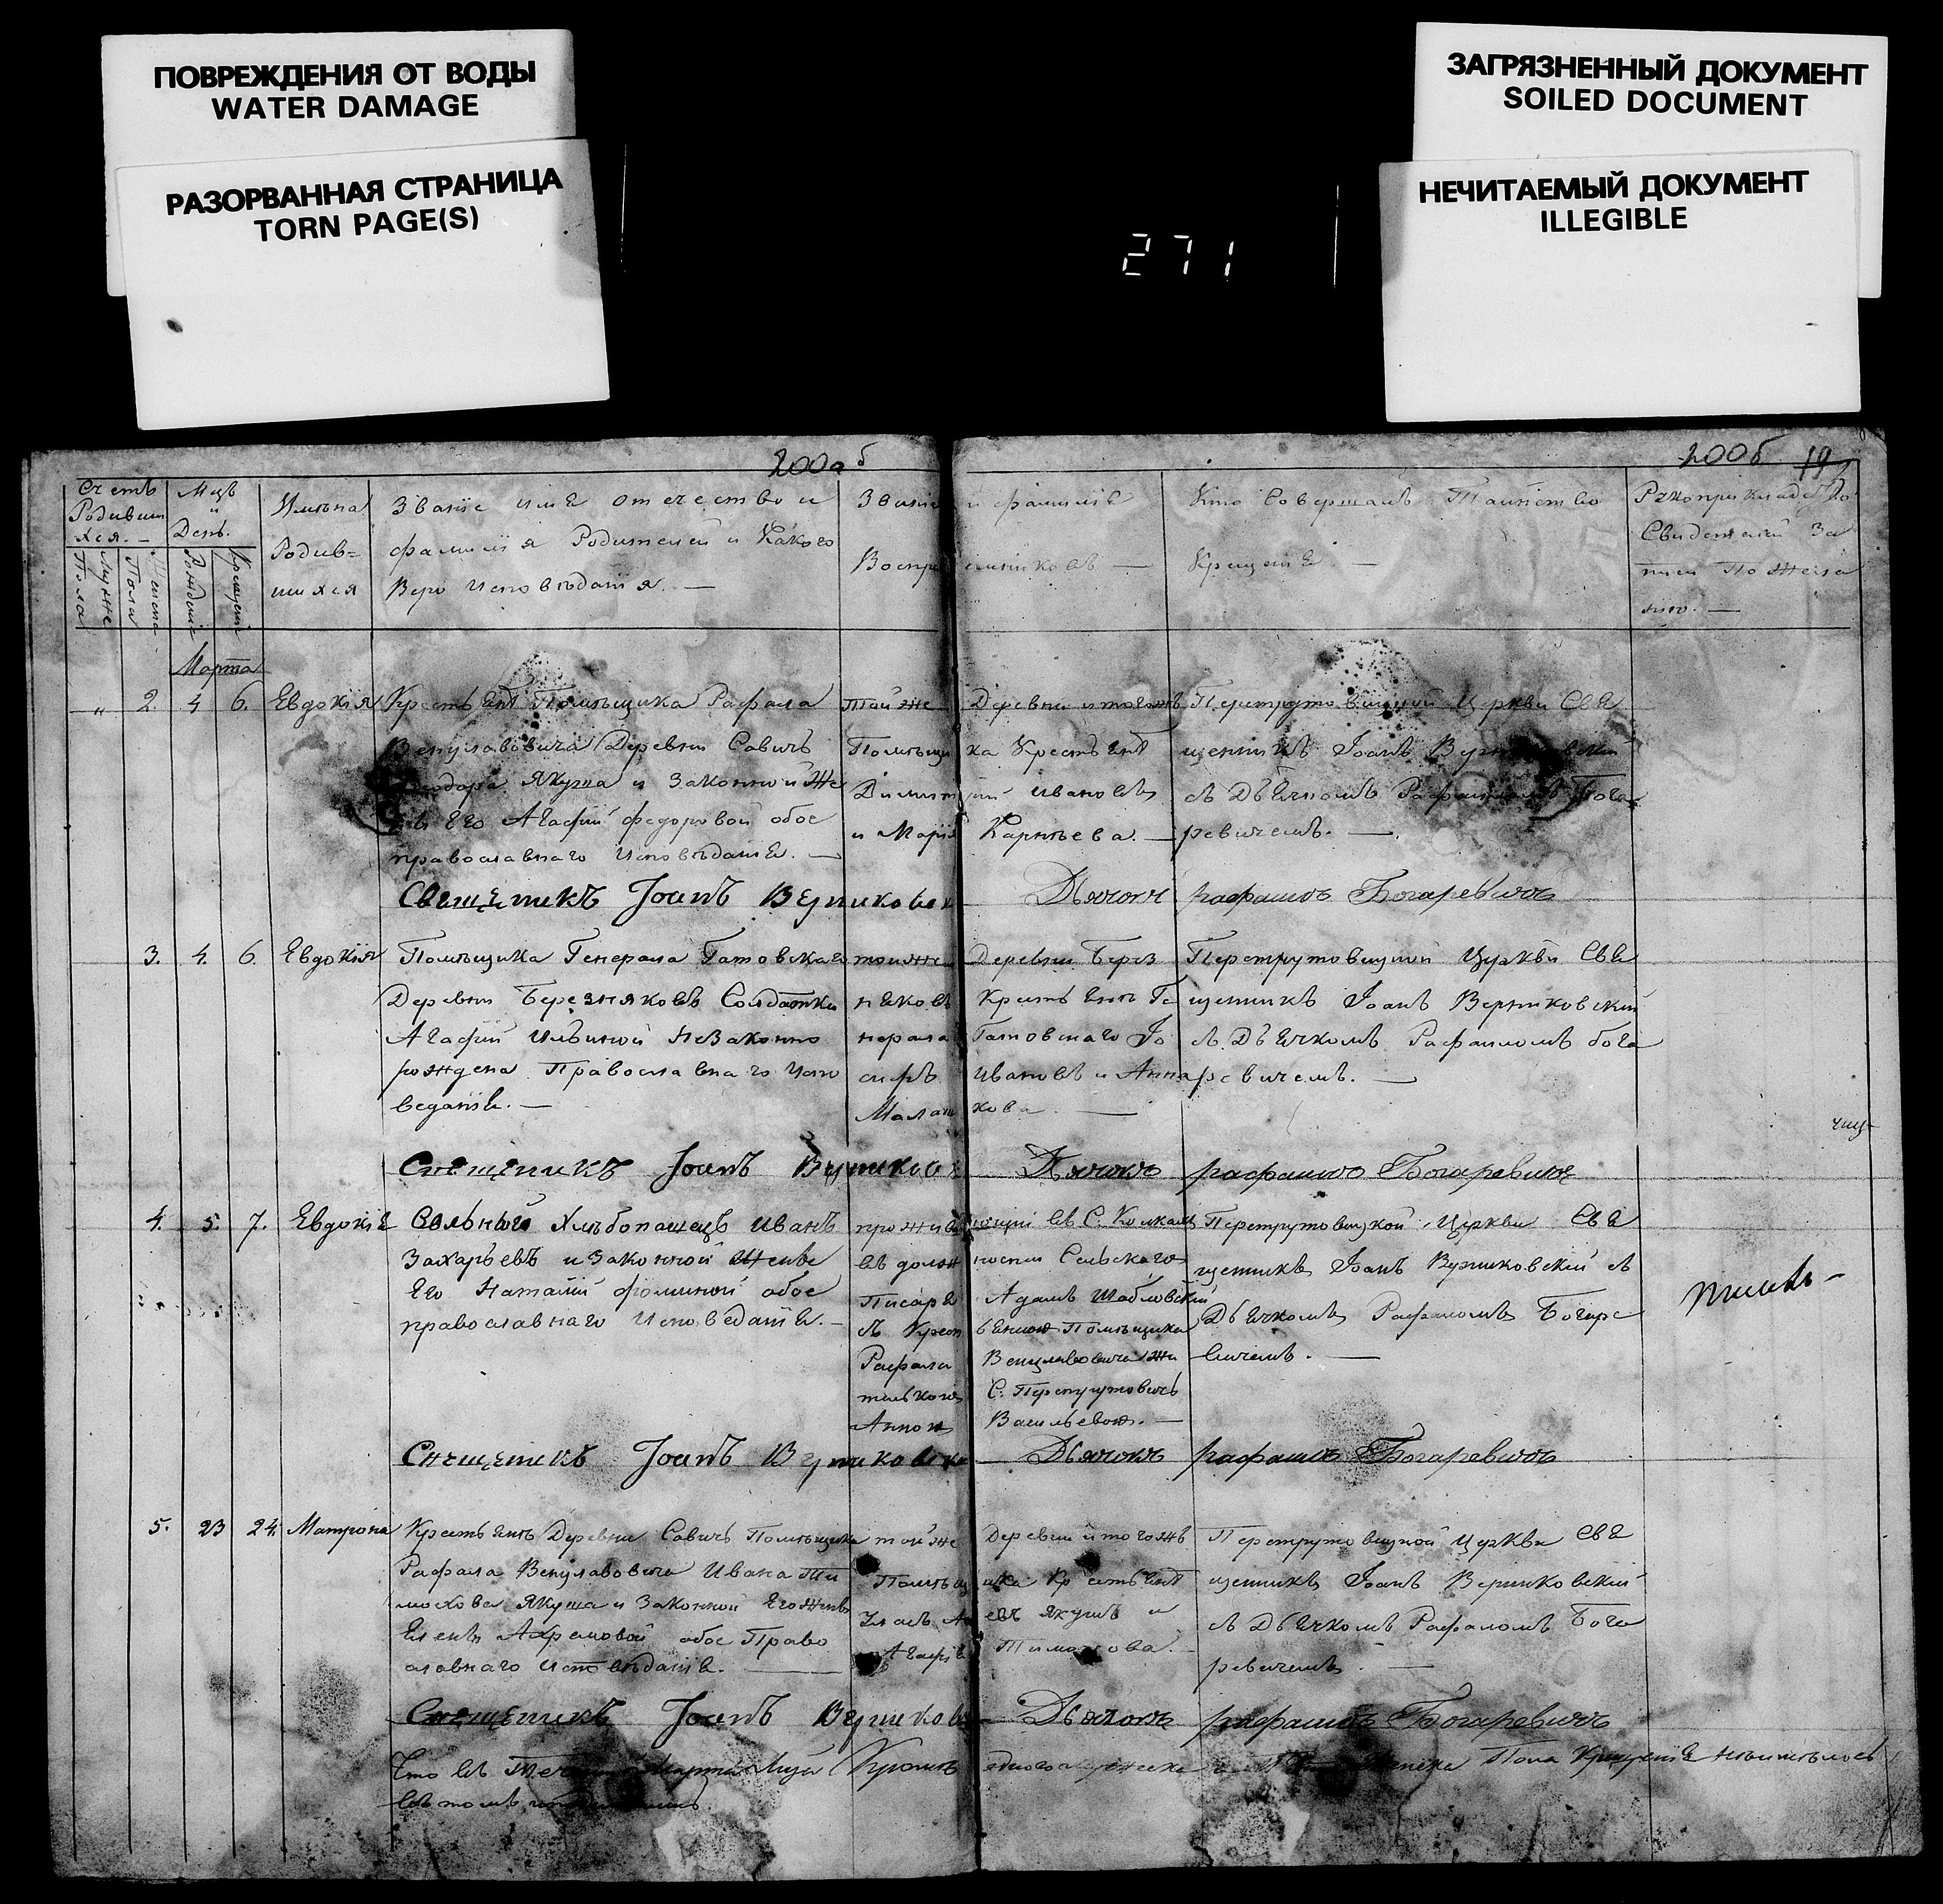 ПОВРЕЖДЕНИЯ ОТ ВОДЫ
WATER DAMAGE
РАЗОРВАННАЯ СТРАНИЦА
TORN PAGE(S)
ЗАГРЯЗНЕННЫЙ ДОКУМЕНТ
SOILED DOCUMENT
НЕЧИТАЕМЫЙ ДОКУМЕНТ
ILLEGIBLE
271
200а б
200б 19
Счетъ Родившихся.
Мужеска Пола
Женска Пола
Мцъ и День.
Рожденіе
Крещеніе
Имена Родив=шихся
Званіе имя отечество и
фамилія Родителей и Какого
Веро исповѣданія. —
Званіе и фамиліе
Воспріемниковъ —
Кто Совершалъ Таинство
Крещеніе —
Рукоприкладство
Свидетелей За
писи По Жела
нию. —
Марта
" 2. 4 6. Евдокія
Крестьянъ Помѣщика Рафала
Венулавовича Деревни Савичъ
Якуша и Законной Же
его Агафіи федоровой обое
православнаго исповѣдание. —
той же Деревни и тогожъ
Помѣщика Крестьянъ
Димитрій Ивановъ
и Марія Карпѣева. —
Перетрутовицкой Церкви Свя
щенникъ Іоанъ
съ Дьячкомъ Рафаиломъ Бога
ревичемъ. —
Священикъ Іоанъ Верниковск
Дьячокъ рафаилъ Богаревичъ
3. 4. 6. Евдокія
Помѣщика Генерала Гатовскаго
Деревни Березняковъ Солдатки
Агафіи Ильиной Незаконно
рождена Православнаго Испо
веданія. —
тоижъ Деревни Берез
няковъ Крестьянъ Ге
нерала Гатовскаго Іо
сифъ Ивановъ и Анна
Малашкова. —
Перетрутовицкой Церкви Свя
щенникъ Іоанъ Верниковский
съ Дьячкомъ Рафаиломъ бога
ревичемъ. —
Священикъ Іоанъ Верников
Дьячокъ рафаилъ Богаревичъ
4. 5. 7. Евдокія
Вольный Хлѣбопашецъ Иванъ
Захарьевъ и Законной Жены
Его Наталіи фоминой обое
православнаго Исповеданіе. —
проживающій въ С.
въ должности Сельского
Писаря Адамъ Шабловскій
съ Крестьянкою Помѣщика
Рафала Венулавовича Жи
тлькою С. Перетрутовичъ
Анною Васильевою. —
Перетрутовицкой Церкви Свя
щенникъ Іоанъ Верниковскій съ
Дьячкомъ Рафаломъ Богаре
вичемъ. —
Священикъ Іоанъ Верниковск
Дьячокъ рафаилъ Богаревичъ
5. 23 24. Матрона
Крестьянъ Деревни Савичъ Помѣщика
Рафала Венулавовича Ивана Ти
мохова Якуша и Законной Его Жены
Елены Ахремовой обое Право
славнаго Исповѣданіе. —
той же Деревни и тогожъ
Помѣщика Крестьянъ
Якушъ и
Агафія Тимохова. —
Перетрутовицкой Церкви Свя
щенникъ Іоанъ Верниковский
съ Дьячкомъ Рафаломъ Бога
ревичемъ. —
Священикъ Іоанъ Верников
Дьячокъ рафаилъ Богаревичъ
Что въ Марта Мца Кромѣ
Пола Крещеніе